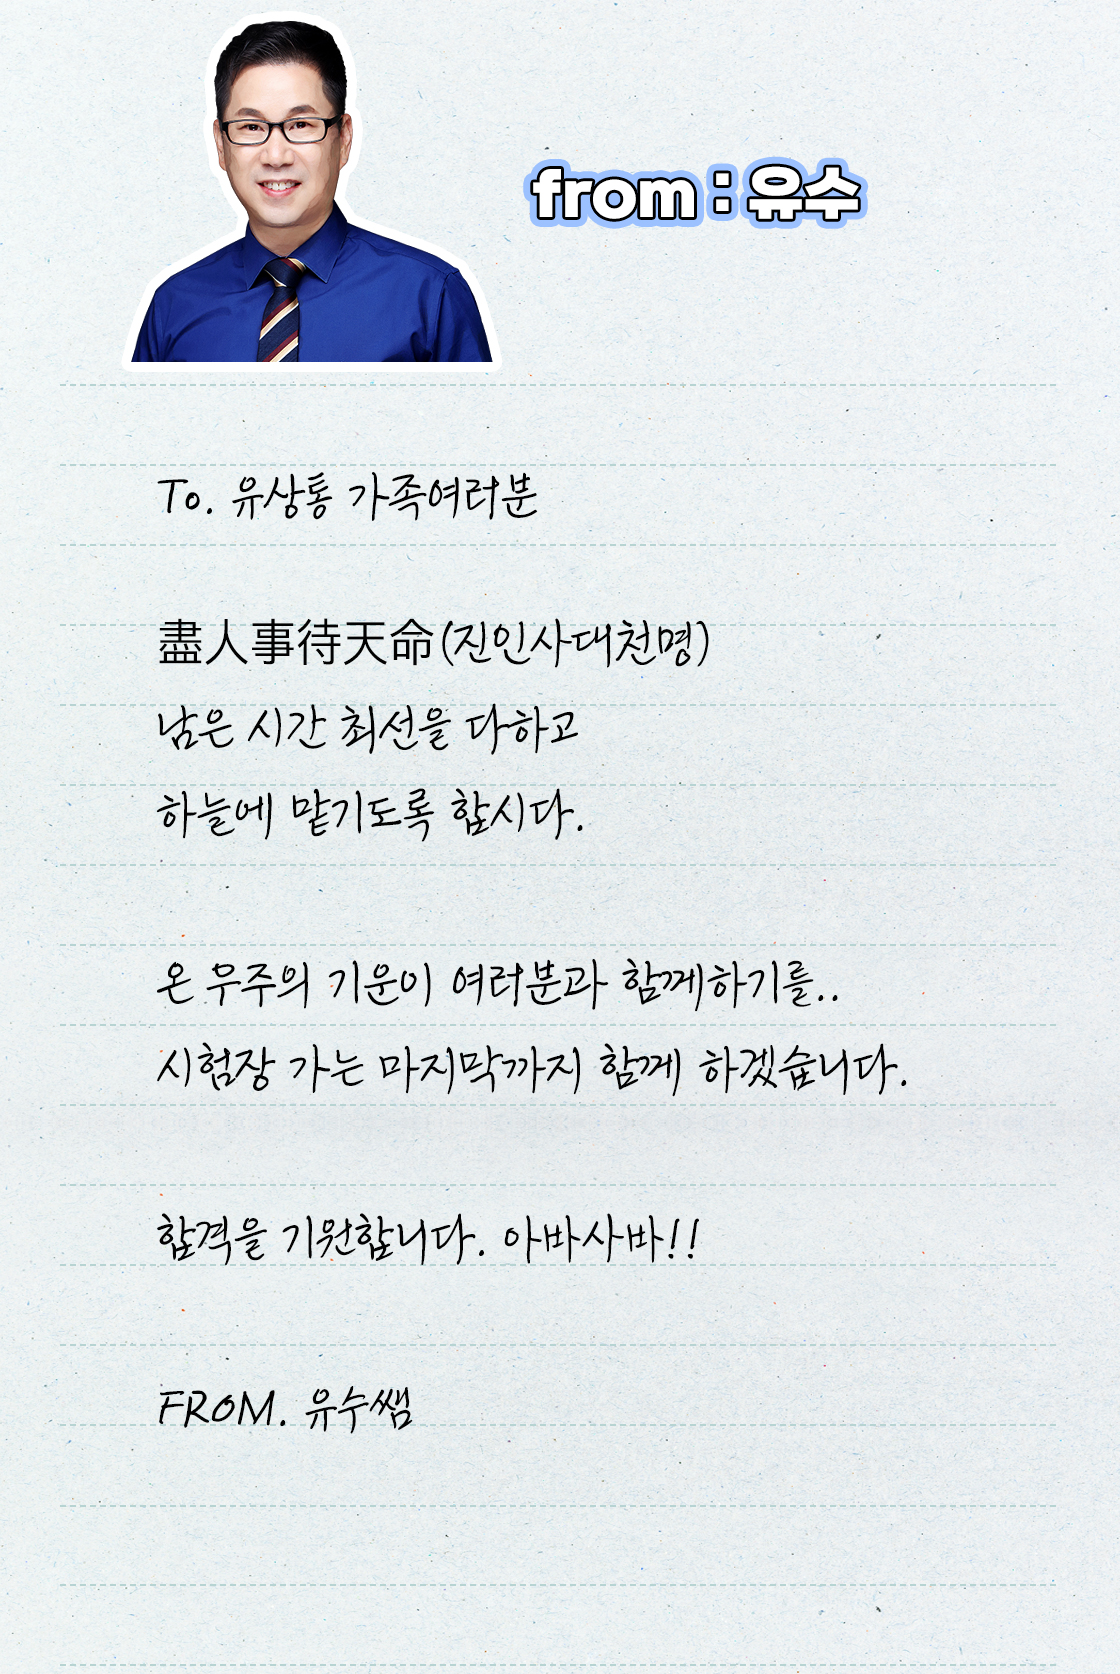 from : 유수
To. 유상통 가족여러분
盡人事待天命(진인사대천명)
남은 시간 최선을 다하고
하늘에 맡기도록 합시다.
온 우주의 기운이 여러분과 함께하기를..
시험장 가는 마지막까지 함께 하겠습니다.
합격을 기원합니다. 아바사바!!
FROM. 유수쌤